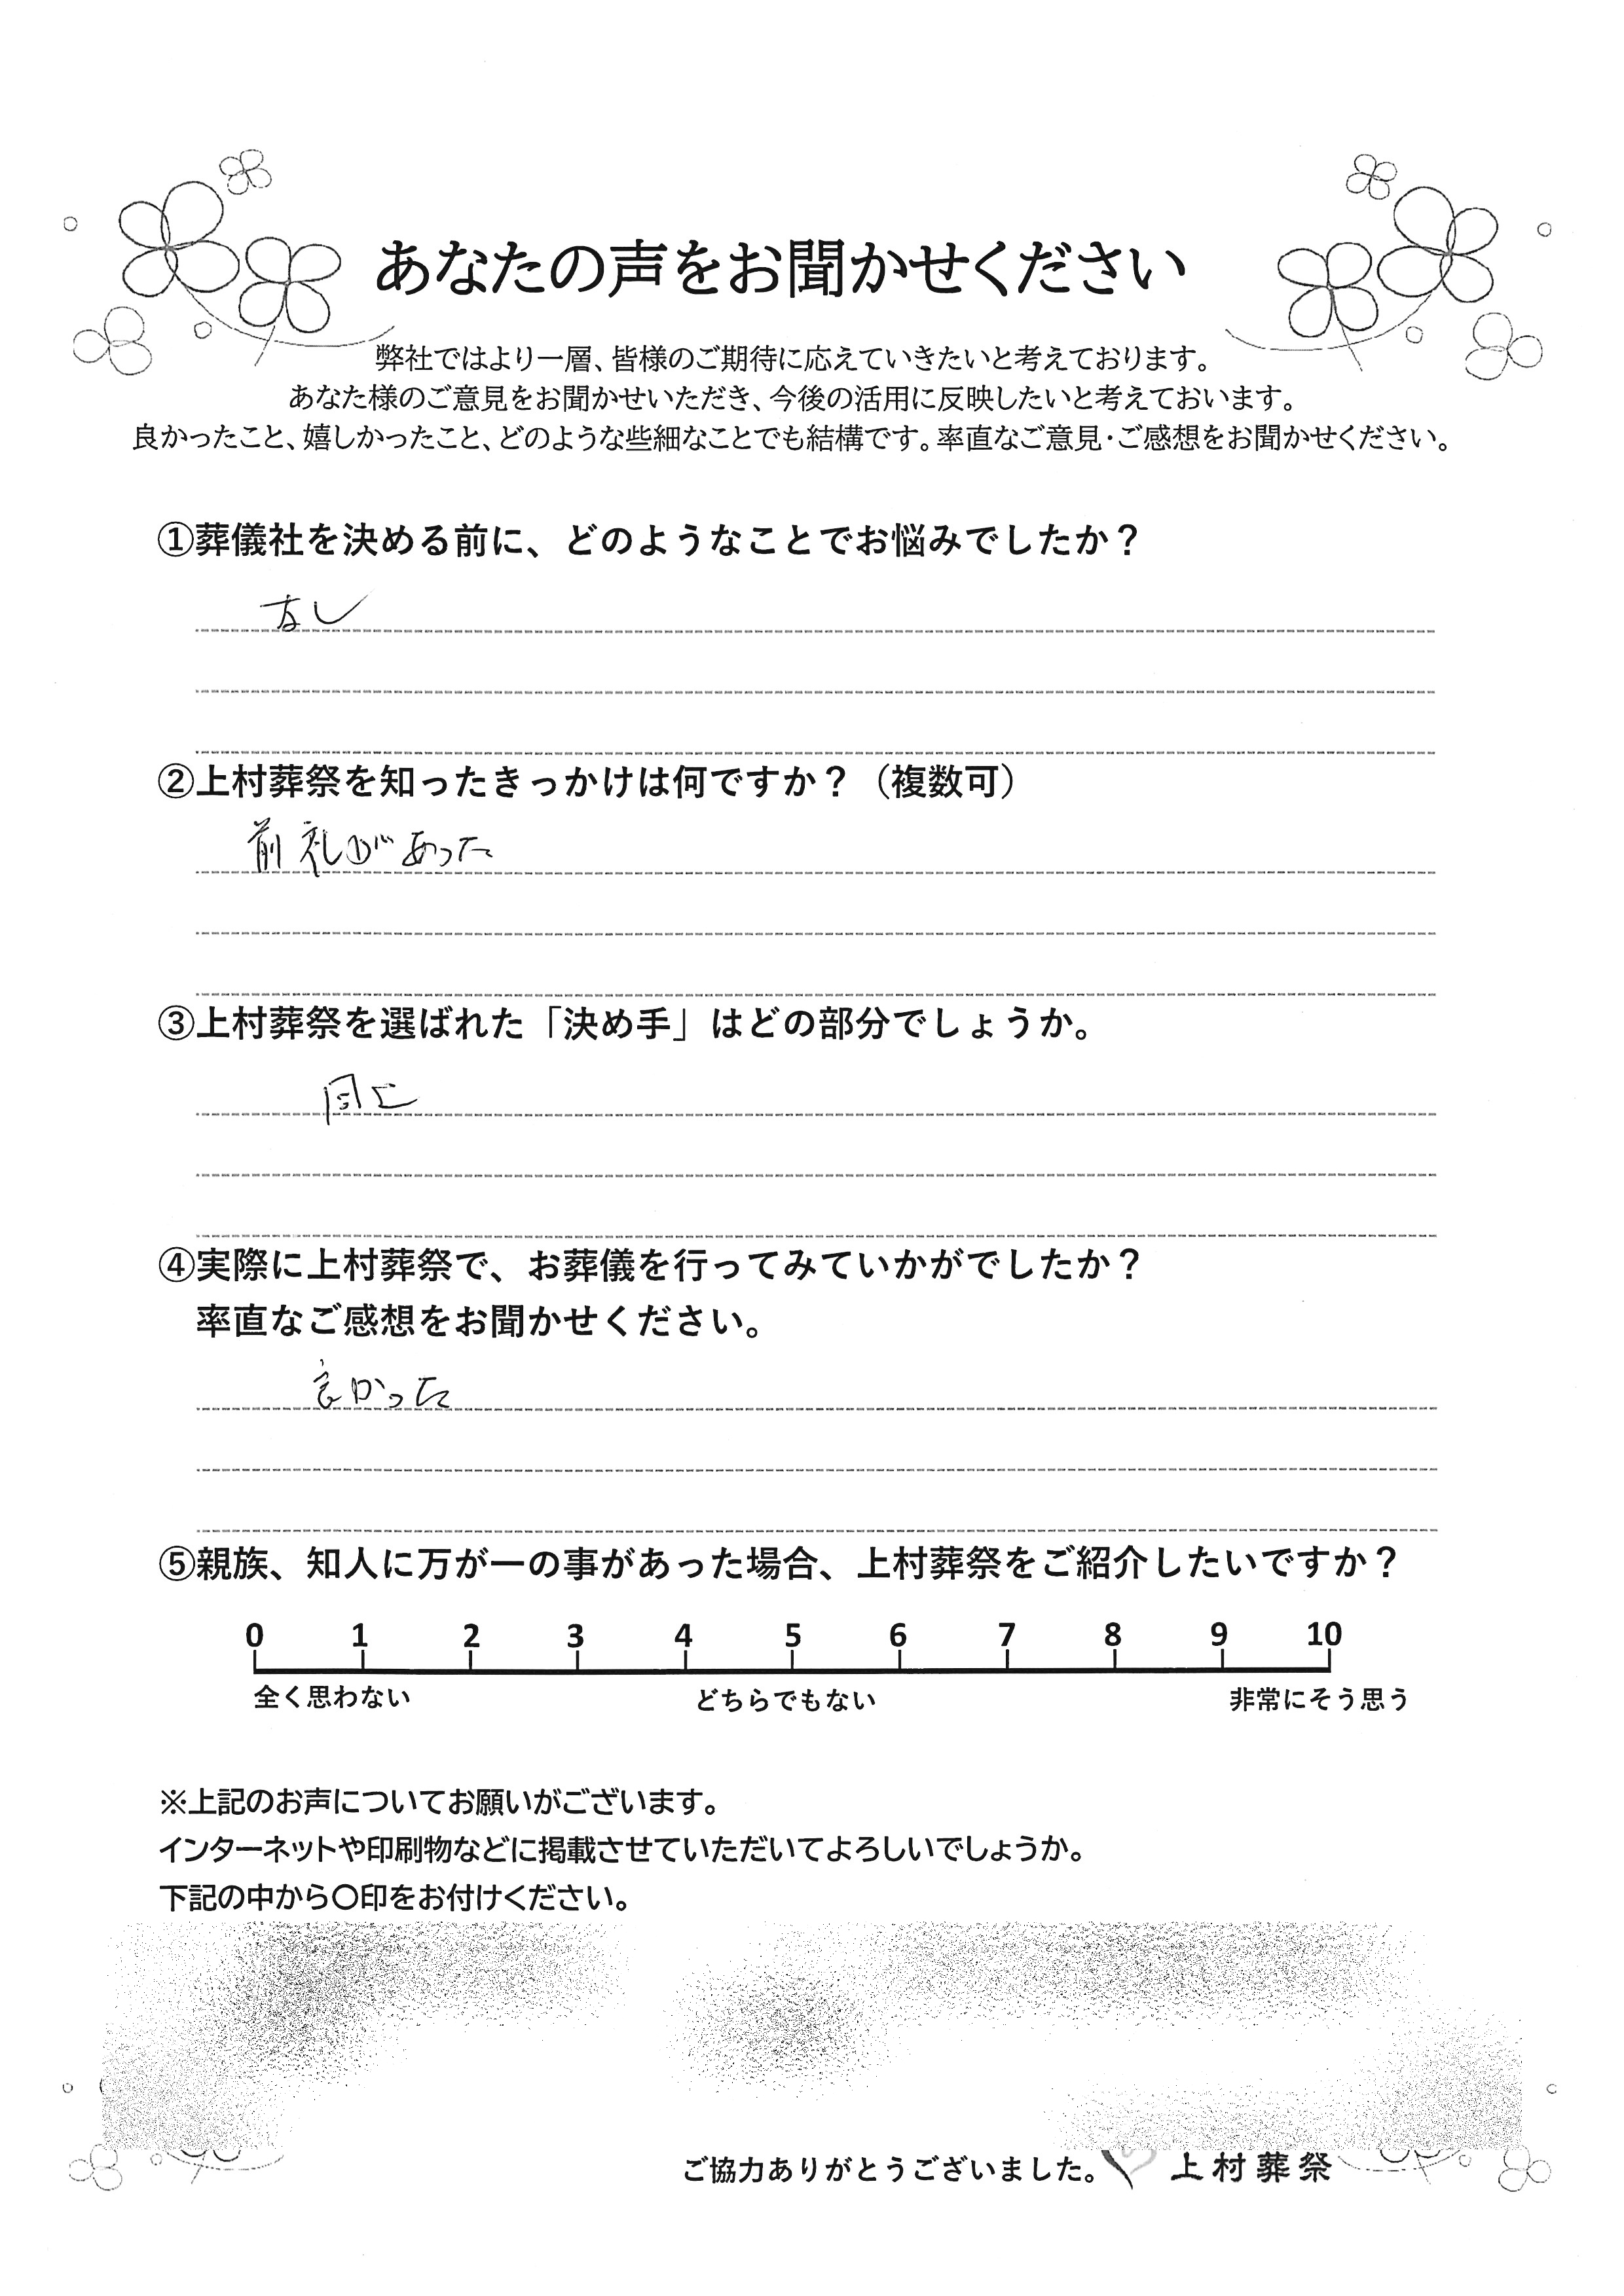 あなたの声をお聞かせください
弊社ではより一層、皆様のご期待に応えていきたいと考えております。
あなた様のご意見をお聞かせいただき、今後の活用に反映したいと考えておいます。
良かったこと、嬉しかったこと、どのような些細なことでも結構です。率直なご意見・ご感想をお聞かせください。
①葬儀社を決める前に、どのようなことでお悩みでしたか？
なし
②上村葬祭を知ったきっかけは何ですか？（複数可）
前礼があった
③上村葬祭を選ばれた「決め手」はどの部分でしょうか。
同上
④実際に上村葬祭で、お葬儀を行ってみていかがでしたか？
率直なご感想をお聞かせください。
良かった
⑤親族、知人に万が一の事があった場合、上村葬祭をご紹介したいですか？
0 1 2 3 4 5 6 7 8 9 10
全く思わない どちらでもない 非常にそう思う
※上記のお声についてお願いがございます。
インターネットや印刷物などに掲載させていただいてよろしいでしょうか。
下記の中から〇印をお付けください。
ご協力ありがとうございました。 上村葬祭